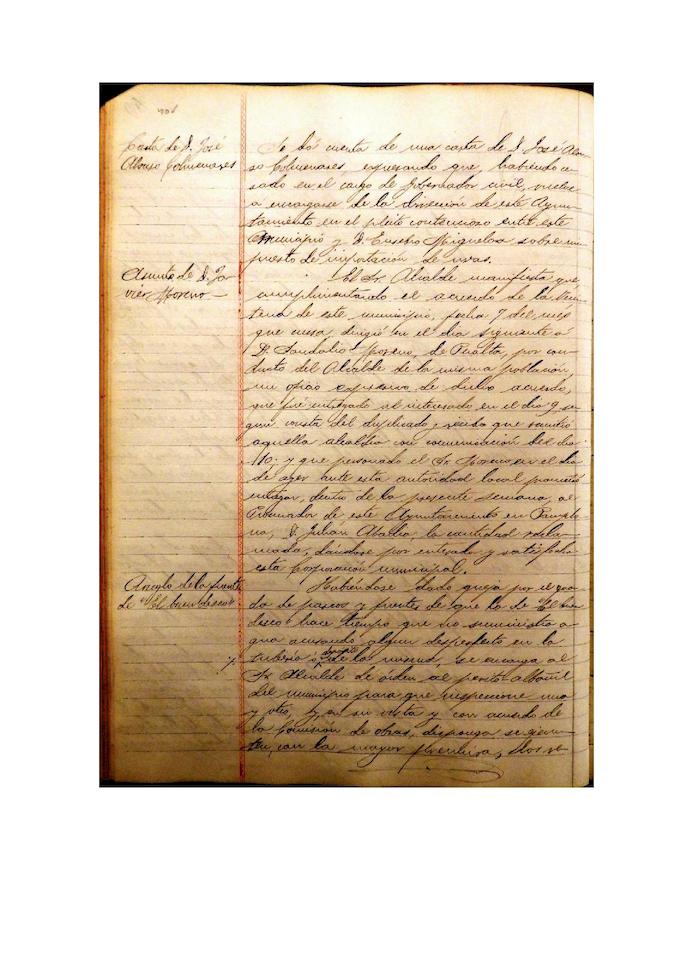 Carta de D. José
Alonso Colmenares
Se dá cuenta de una carta de D. José Alon-
so Colmenares, expresando que, habiendo ce-
sado en el cargo de gobernador civil, vuelve
a encargarse de la dirección de este Ayun-
tamiento en el pleito contencioso entre este
Municipio y D. Eusebio sobre im-
puesto de importación de uvas.
Asunto de D. Ja-
vier Moreno
El Sr. Alcalde manifiesta que,
cumplimentando el acuerdo de la
de este municipio, fecha 7 del mes
que cursa, dirigió en el día siguiente á
D. Moreno, de Peralta, por con-
ducto del Alcalde de la misma población,
un oficio expresivo de dicho acuerdo,
que fué entregado al interesado en el día 9, se-
gún consta del duplicado que remitió
aquella alcaldía con comunicación del día
10; y que personado el Sr. Moreno en el día
de ayer ante esta autoridad local prometió
entregar, dentro de la presente semana, al
Procurador de este Ayuntamiento en Pamplo-
na, D. Julián la cantidad recla-
mada, dándose por enterado y satisfecho
esta Corporación municipal.
Arreglo de la fuente
de "El buen deseo"
Habiéndose dado queja por el guar-
da de paseos y fuentes de que la de "El buen
deseo" hace tiempo que no suministra a-
gua acusando algun desperfecto en la
tubería ó depósito de la misma, se encarga al
Sr. Alcalde de órden al perito albañil
del municipio para que inspeccione uno
y otro, y, en su vista y con acuerdo de
la Comisión de obras, disponga se ejecu-
ten, con la mayor premura, los re-